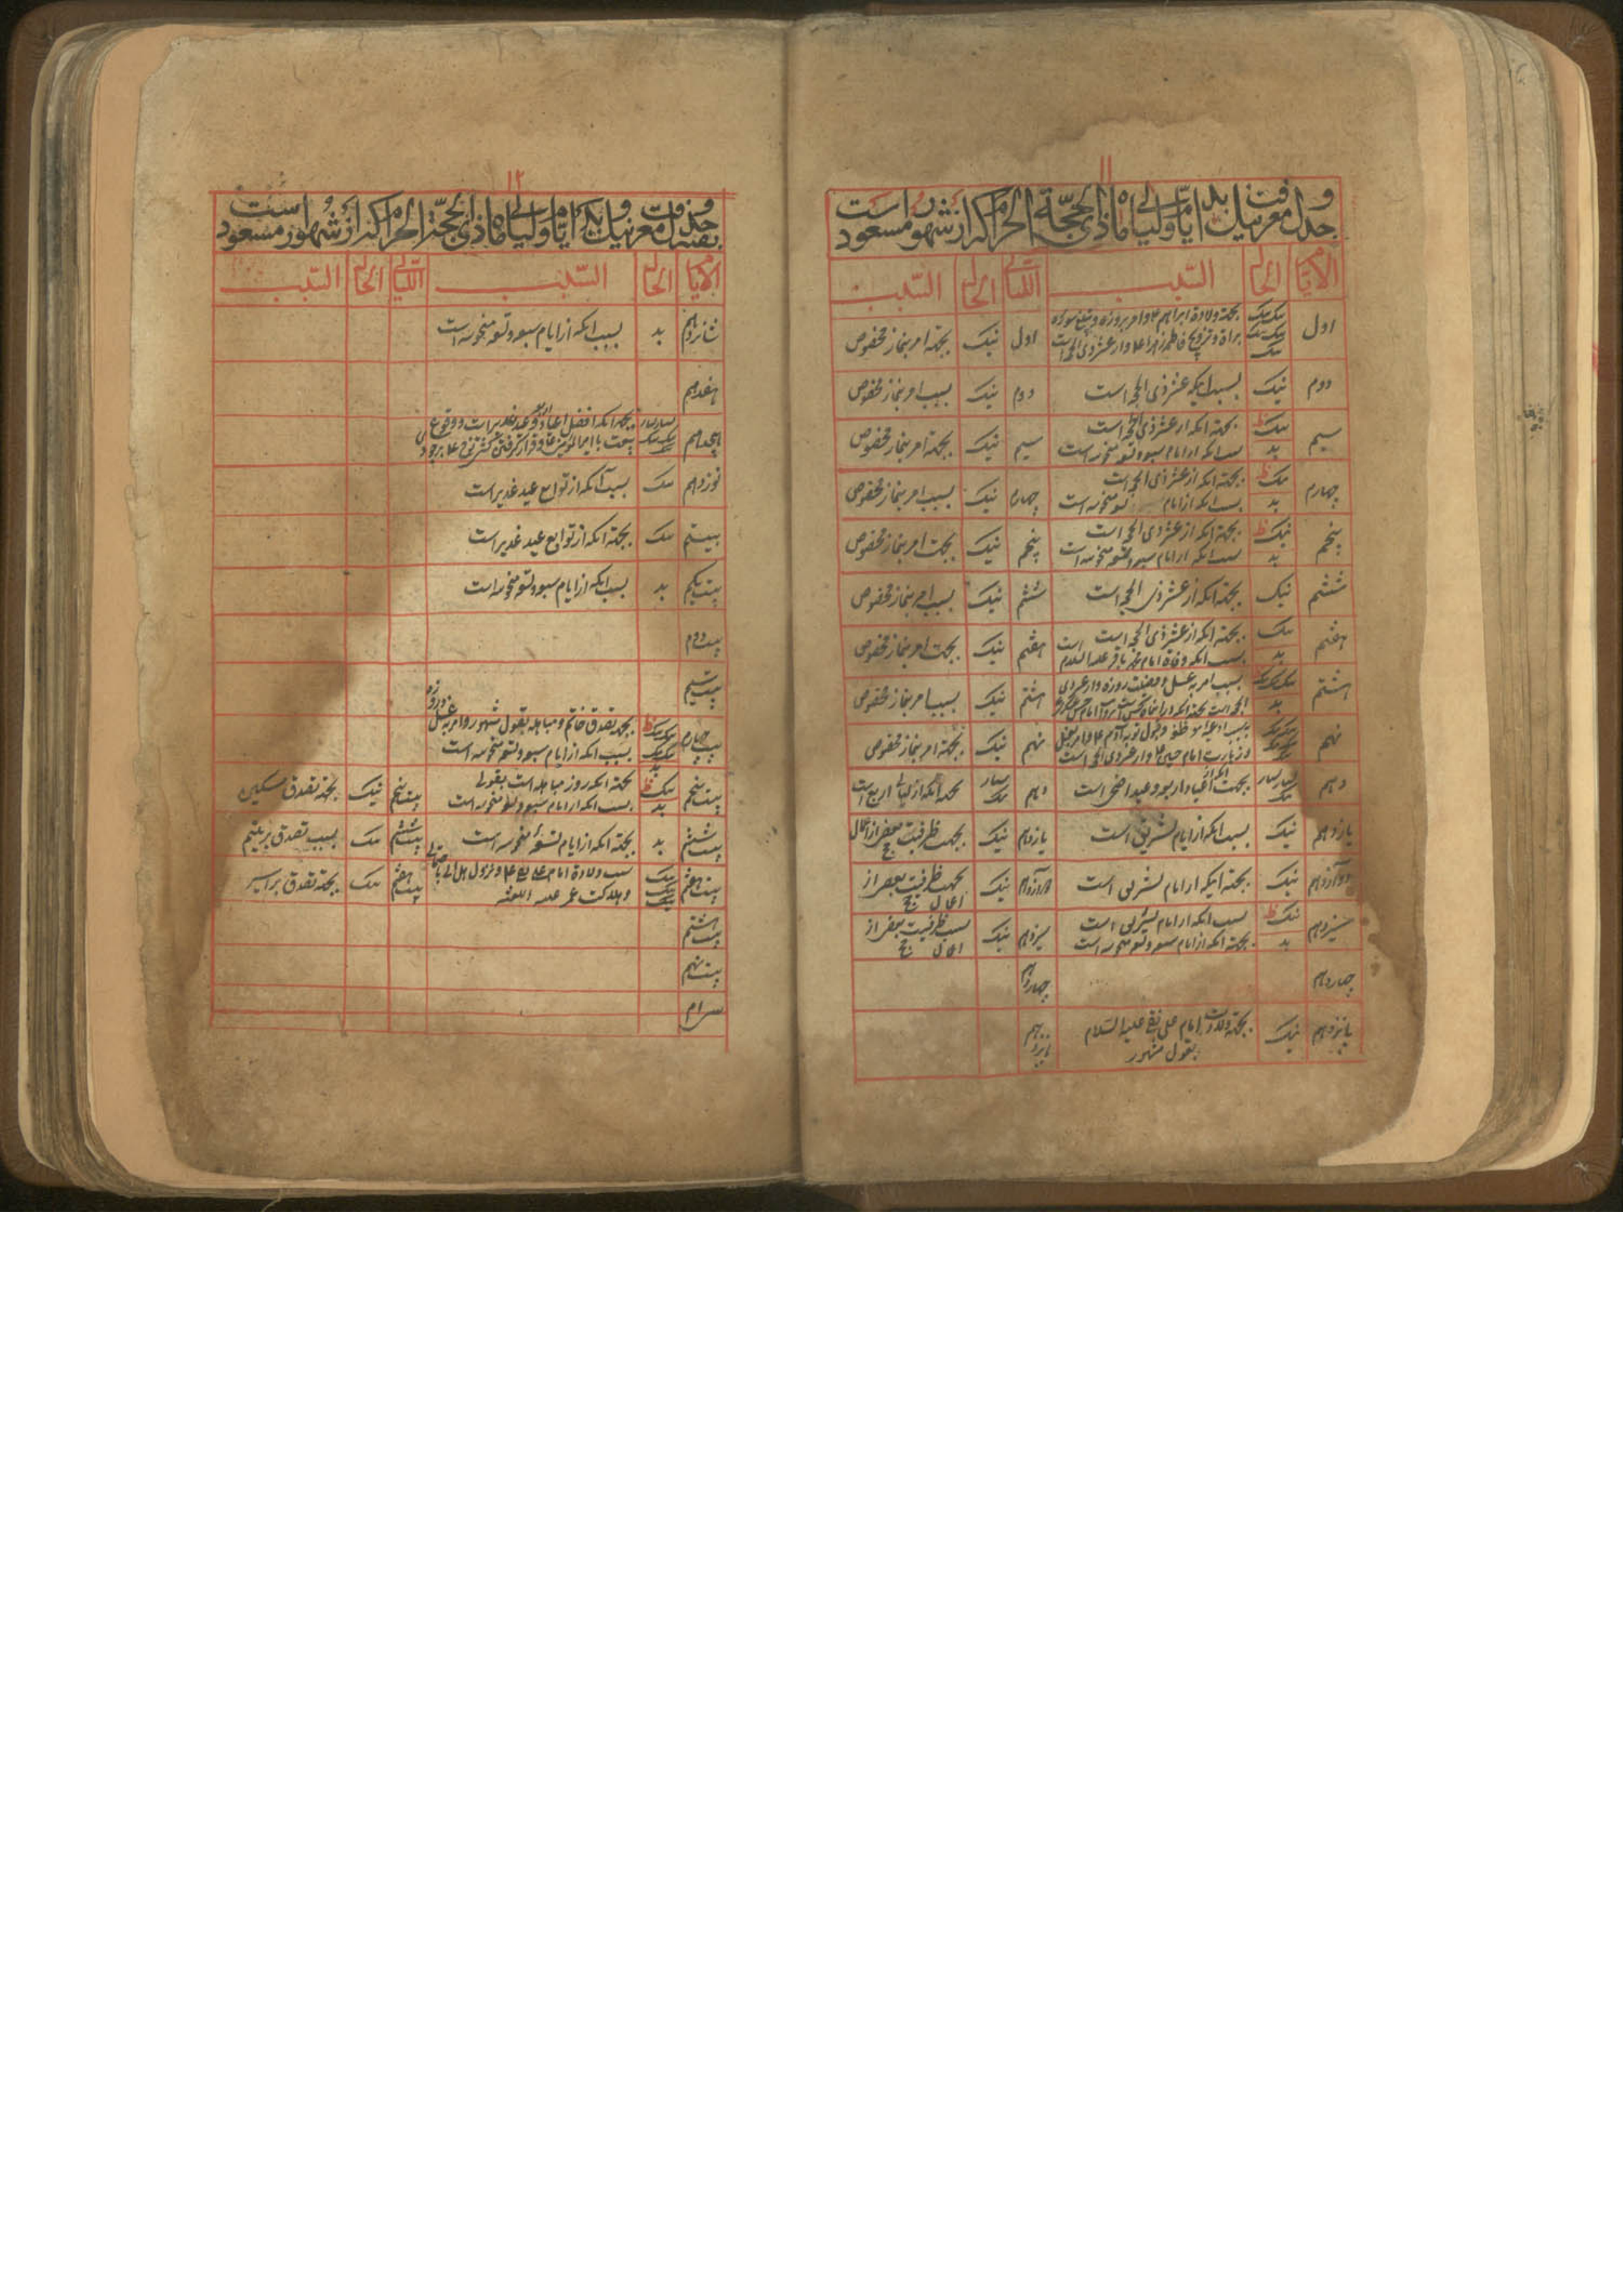 ۱۱
جدول معرفت نیک و بد ایام و لیالی ماه ذی الحجّة الحرام که از شهور مسعود است
الایام الحال السّبب اللیالی الحال السّبب
اول نیک نیک نیک نیک نیک بجهة ولادة ابراهیم ع و امر بروزه و تبلیغ سوره
براة و تزویج فاطمه زهرا ع و از عشر ذی الحجه است اول نیک بجهة امر بنماز مخصوص
دوم نیک بسبب اینکه عشر ذی الحجه است دوم نیک بسبب امر بنماز مخصوص
سیم نیک ظ بجهة انکه از عشر ذی الحجه است
بد بسبب انکه از ایام سبعه و تسعه منحوسه است سیم نیک بجهة امر بنماز مخصوص
چهارم نیک ظ بجهة انکه از عشر ذی الحجه است
بد بسبب انکه از ایام تسعه منحوسه است چهارم نیک بسبب امر بنماز مخصوص
پنجم نیک ظ بجهة انکه از عشر ذی الحجه است
بد بسبب انکه از ایام سبعه و تسعه منحوسه است پنجم نیک بجهت امر بنماز مخصوص
ششم نیک بجهة انکه از عشر ذی الحجه است ششم نیک بسبب امر بنماز مخصوص
هفتم نیک بجهة انکه از عشر ذی الحجه است
بد بسبب انکه وفاة امام محمد باقر علیه السلام است هفتم نیک بجهت امر بنماز مخصوص
هشتم نیک نیک نیک بسبب امر به غسل و فضیلت روزه و از عشر ذی
بد الحجه است هشتم نیک بسبب امر بنماز مخصوص
نهم نیک نیک نیک نیک بسبب ادعیه موظفه و قبول توبه آدم ع و امر بغسل
و زیارت امام حسین ع و از عشر ذی الحجه است نهم نیک بجهة امر بنماز مخصوص
دهم بسیار بسیار نیک بجهت انکه از اعیاد اربعه و عید اضحی است دهم بسیار نیک بجهة انکه از لیالی اربع است
یازدهم نیک بسبب انکه از ایام تشریق است یازدهم نیک بجهت ظرفیت بعضی از اعمال حج
دوازدهم نیک بجهة اینکه از ایام تشریق است دوازدهم نیک بجهت ظرفیت بعضی از
اعمال حج
سیزدهم نیک ظ بسبب انکه از ایام تشریق است
بد بجهة انکه از ایام سبعه و تسعه منحوسه است سیزدهم نیک بسبب ظرفیت بعضی از
اعمال حج
چهاردهم چهاردهم
پانزدهم نیک بجهة ولادت امام علی نقی علیه السّلام
بقول مشهور پانزدهم
۱۲
بقیه جدول معرفت نیک و بد ایام و لیالی ماه ذی الحجّة الحرام که از شهور مسعود است
الایام الحال السّبب اللیالی الحال السّبب
شانزدهم بد بسبب انکه از ایام سبعه و تسعه منحوسه است
هفدهم
هجدهم بسیار بسیار نیک نیک نیک بجهة انکه افضل اعیاد و عید غدیر است و وقوع
بیعت با امیر المؤمنین ع و قرار گرفتن کشتی نوح ع بر جودی
نوزدهم نیک بسبب آنکه از توابع عید غدیر است
بیستم نیک بجهة انکه از توابع عید غدیر است
بیست یکم بد بسبب انکه از ایام سبعه و تسعه منحوسه است
بیست دوم
بیست سیم
بیست چهارم نیک نیک ظ نیک نیک بجهة تصدق خاتم و مباهله بقول مشهور و امر به غسل و روزه
بد بسبب انکه از ایام سبعه و تسعه منحوسه است
بیست پنجم نیک ظ بجهة انکه روز مباهله است بقولی
بد بسبب انکه از ایام سبعه و تسعه منحوسه است بیست پنجم نیک بجهة تصدق مسکین
بیست ششم بد بجهة انکه از ایام تسعه منحوسه است بیست ششم نیک بسبب تصدق بر یتیم
بیست هفتم نیک نیک نیک بسبب ولادة امام علی نقی ع و نزول هل اتی بقولی
و هلاکت عمر علیه اللعنه بیست هفتم نیک بجهة تصدق بر اسیر
بیست هشتم
بیست نهم
سی ام